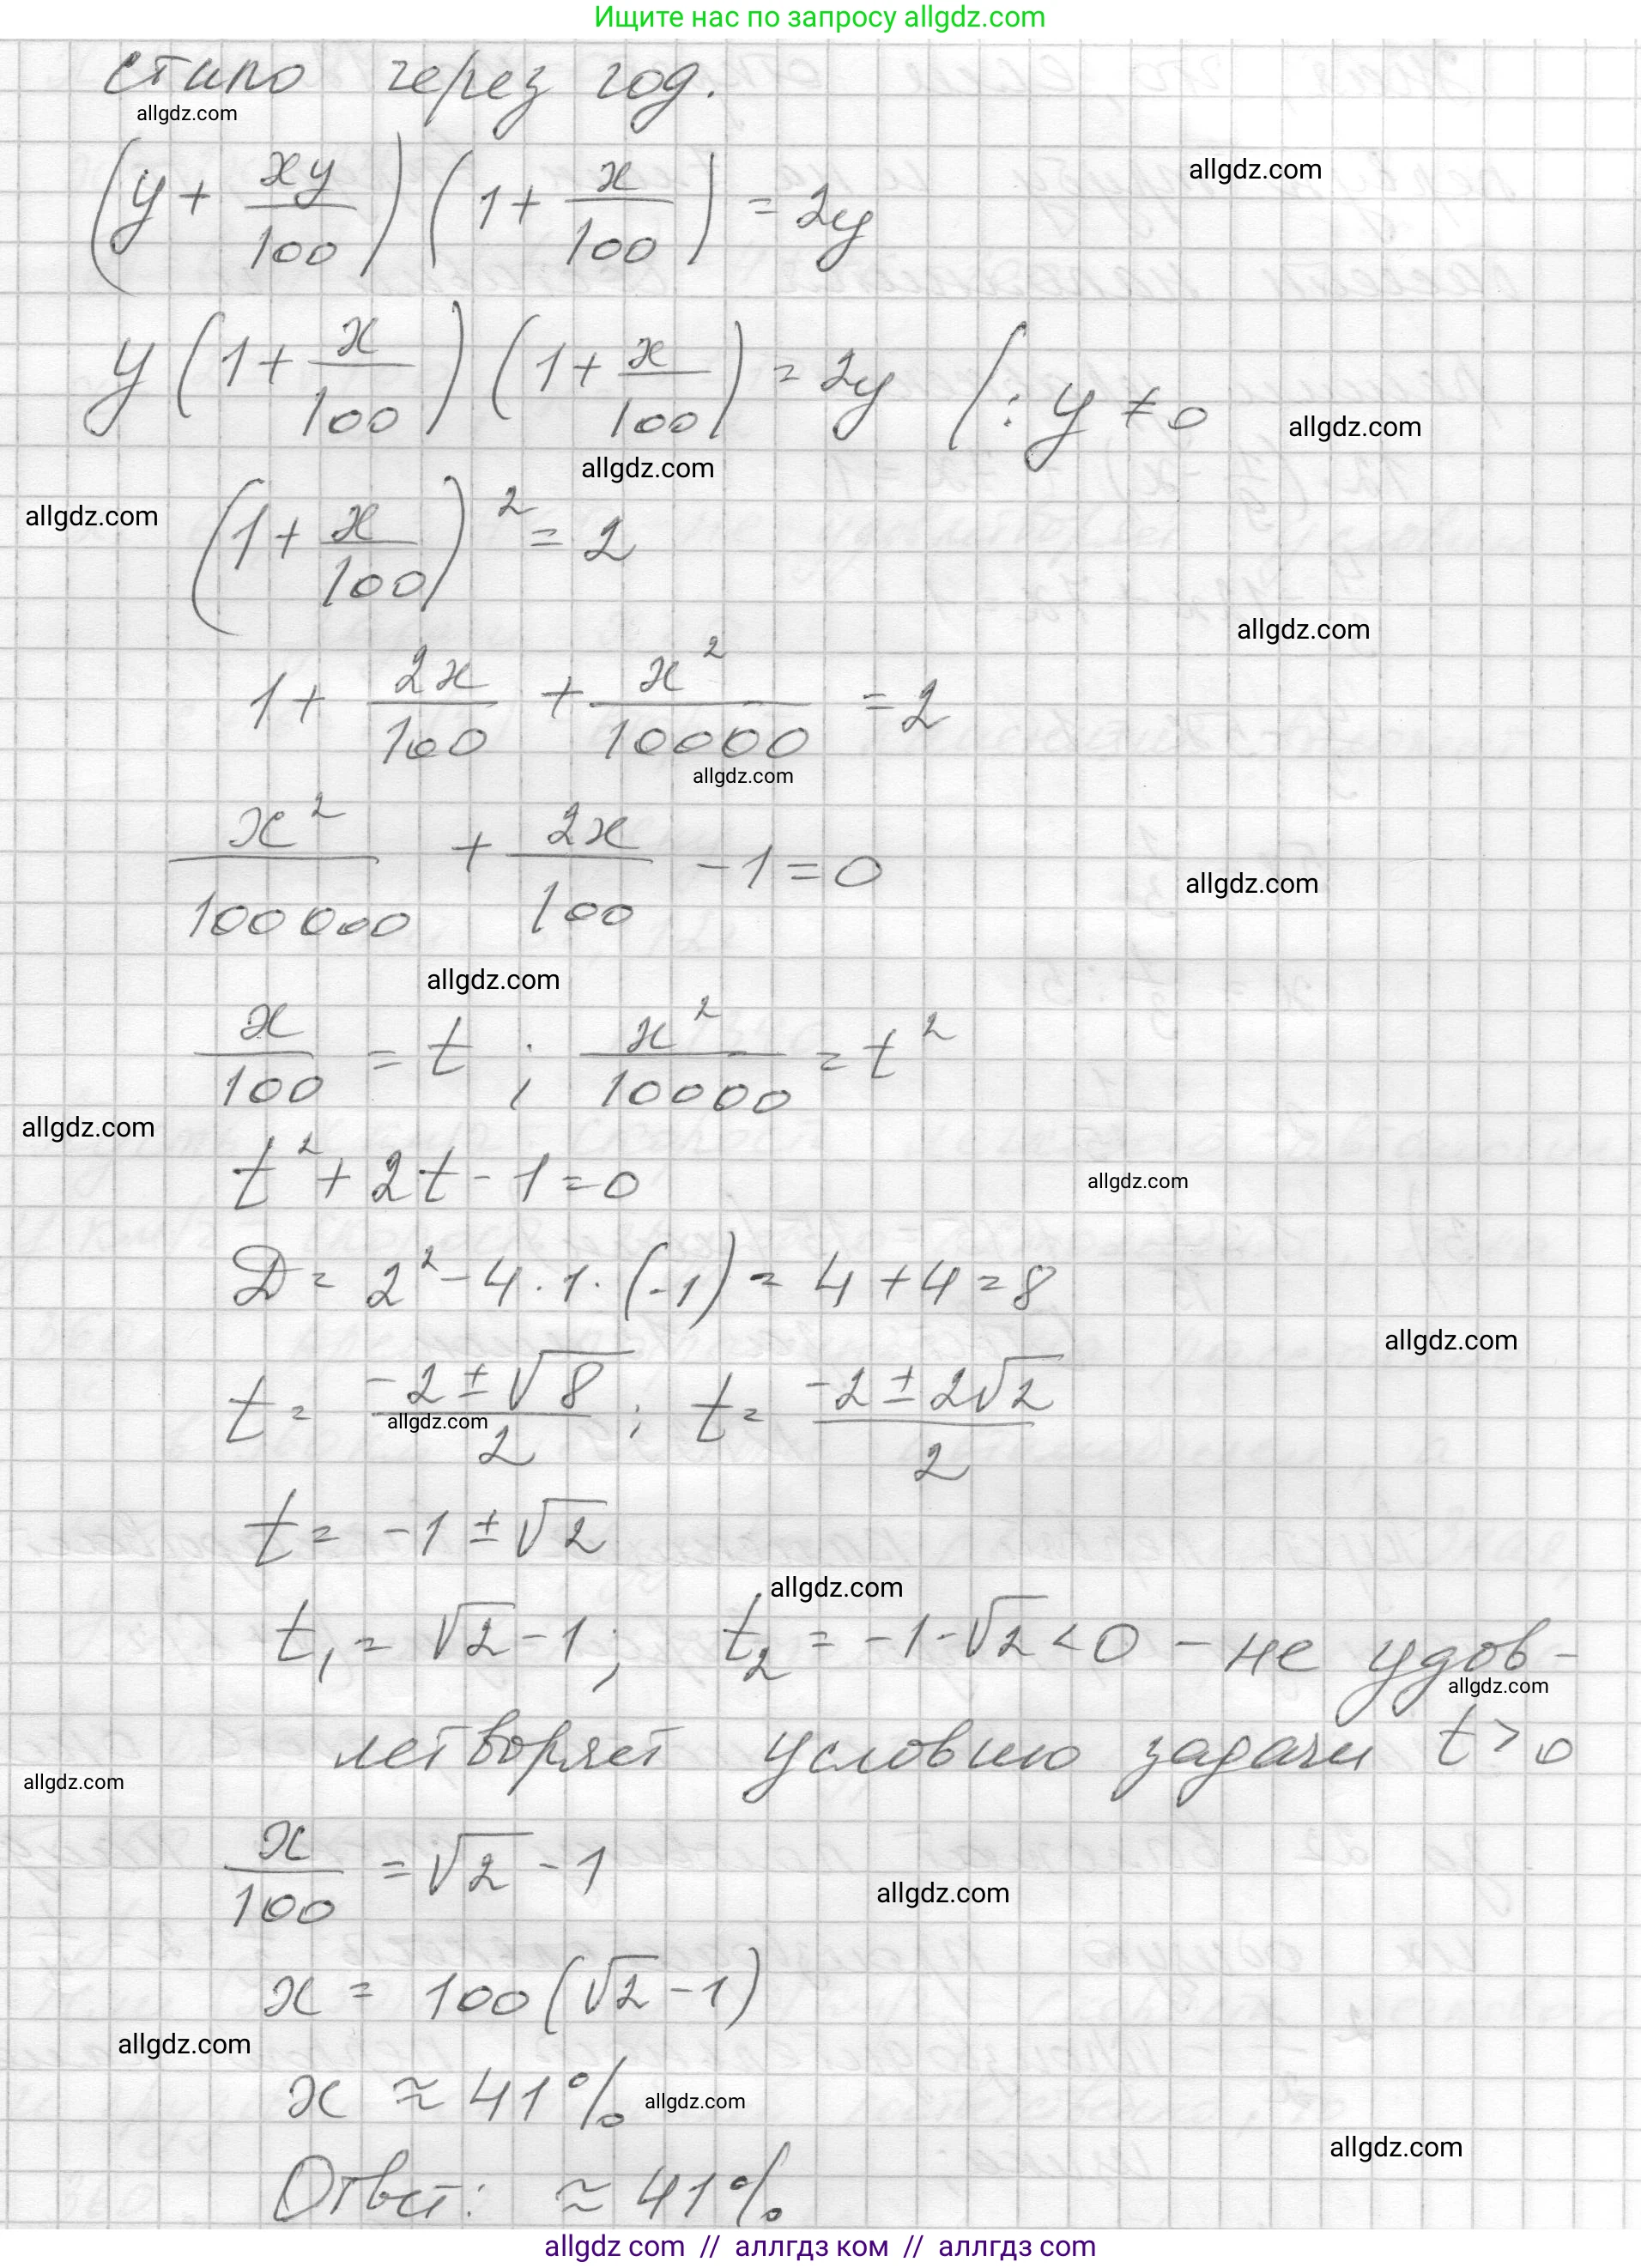 Ищите нас по запросу allgdz.com
стало через год.
allgdz.com
(y + xy/100)(1 + x/100) = 2y
allgdz.com
y(1 + x/100)(1 + x/100) = 2y |: y ≠ 0
allgdz.com
allgdz.com
allgdz.com
(1 + x/100)² = 2
allgdz.com
1 + 2x/100 + x²/10000 = 2
allgdz.com
x²/100000 + 2x/100 - 1 = 0
allgdz.com
allgdz.com
x/100 = t ; x²/10000 = t²
allgdz.com
t² + 2t - 1 = 0
allgdz.com
D = 2² - 4 · 1 · (-1) = 4 + 4 = 8
allgdz.com
t = (-2 ± √8)/2 ; t = (-2 ± 2√2)/2
allgdz.com
t = -1 ± √2
allgdz.com
t₁ = √2 - 1 ; t₂ = -1 - √2 < 0 - не удов-
allgdz.com
летворяет условию задачи t > 0
allgdz.com
x/100 = √2 - 1
allgdz.com
x = 100(√2 - 1)
allgdz.com
x ≈ 41%
allgdz.com
allgdz.com
Ответ: ≈ 41%
allgdz com // аллгдз ком // allgdz com